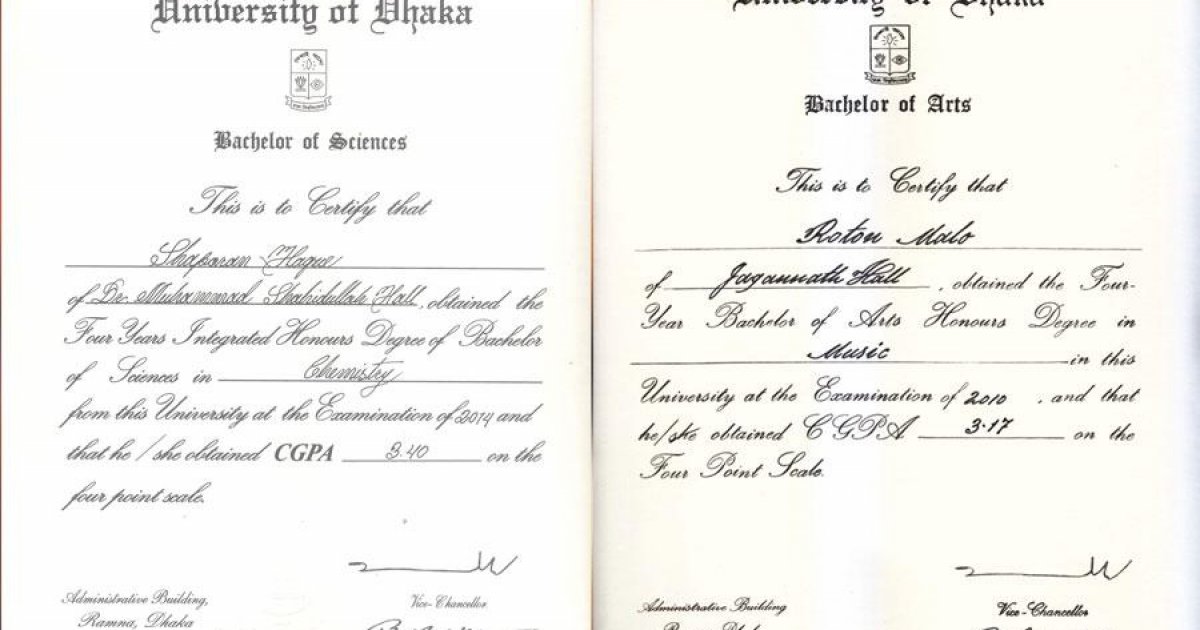 University of Dhaka
Bachelor of Sciences
This is to Certify that
Shaporan Haque
of Dr. Muhammad Shahidullah Hall, obtained the
Four Years Integrated Honours Degree of Bachelor
of Sciences in Chemistry
from this University at the Examination of 2014 and
that he / she obtained CGPA 3.40 on the
four point scale.
Administrative Building,
Ramna, Dhaka
Vice-Chancellor
University of Dhaka
Bachelor of Arts
This is to Certify that
Roton Malo
of Jagannath Hall, obtained the Four-
Year Bachelor of Arts Honours Degree in
Music in this
University at the Examination of 2010, and that
he/she obtained CGPA 3.17 on the
Four Point Scale.
Administrative Building
Vice-Chancellor